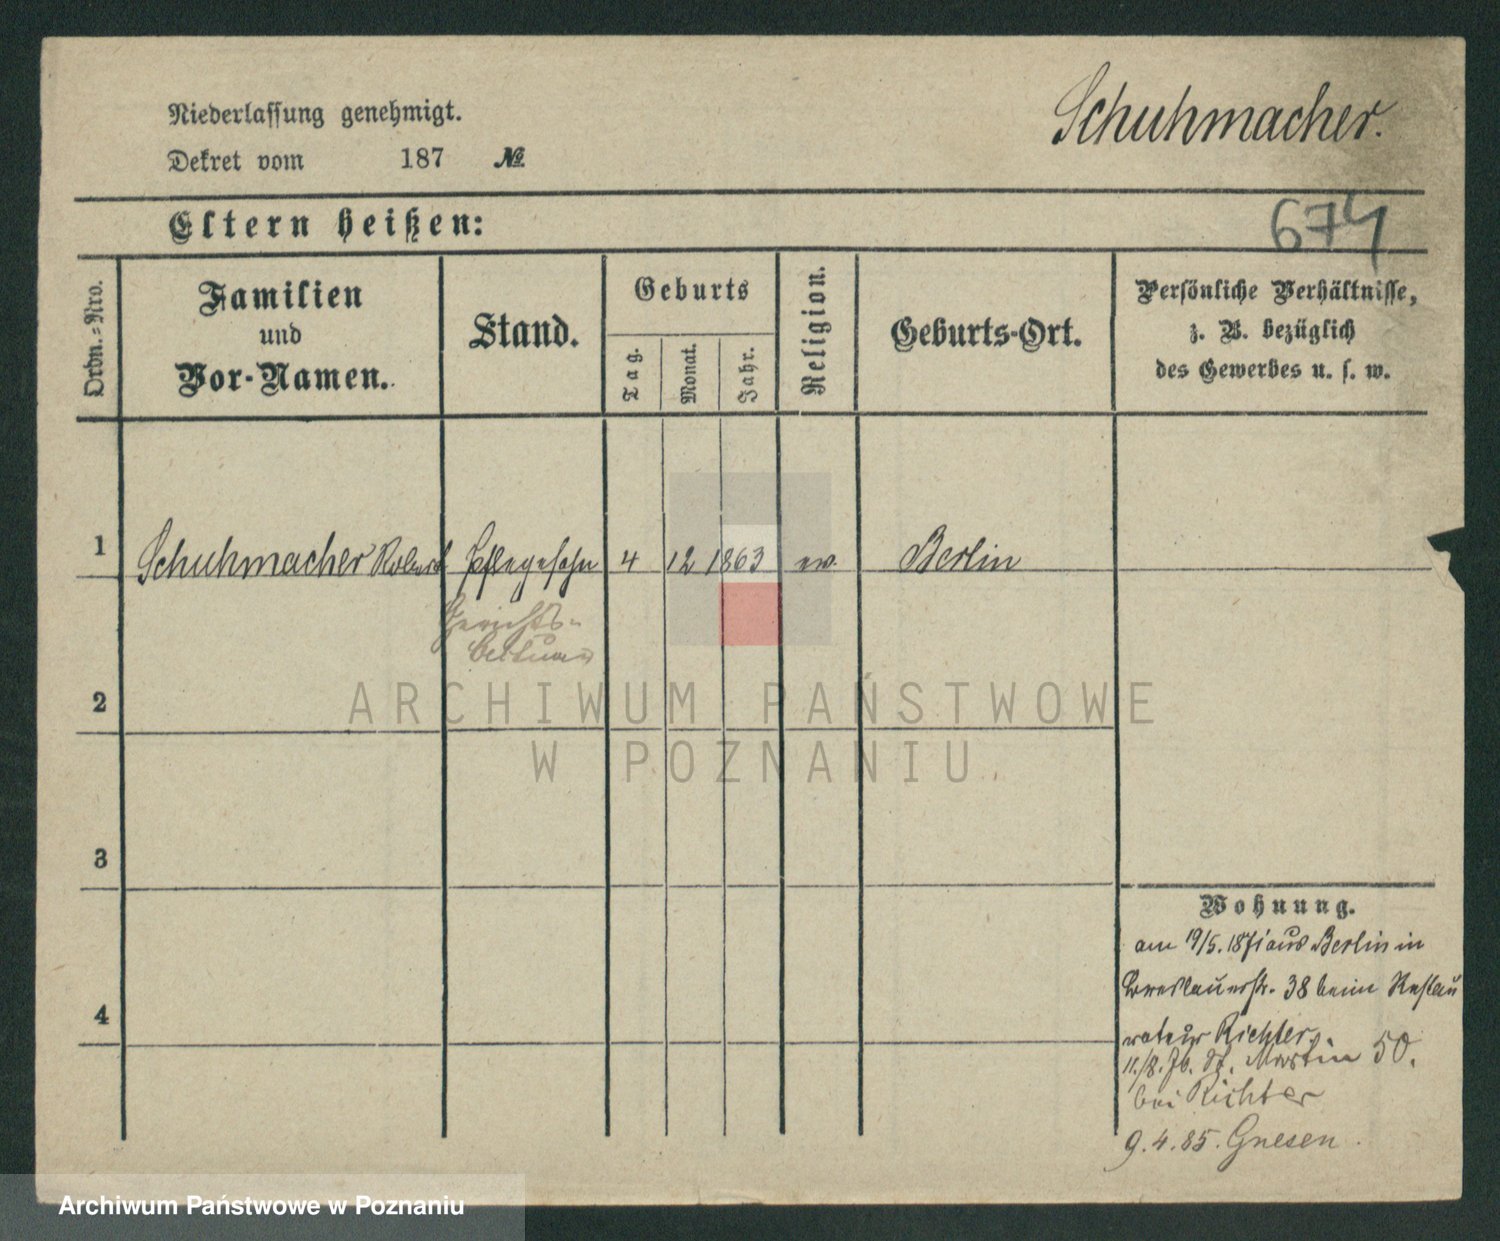 Niederlassung genehmigt.
Dekret vom 187 №
Schuhmacher.
Eltern heißen:
674
Ordn.-Nro.
Familien
und
Vor-Namen.
Stand.
Geburts
Tag.
Monat.
Jahr.
Religion.
Geburts-Ort.
Persönliche Verhältnisse,
z. B. bezüglich
des Gewerbes u. s. w.
1 Schuhmacher Robert Pflegesohn 4 12 1863 ev. Berlin
Gerichts-
2
3
4
Wohnung.
am 19/5. 1871 aus Berlin in
Breslauerstr. 38 beim Restau
rateur Richter.
11./8. 76. St. Martin 50.
bei Richter
9. 4. 85. Gnesen.
ARCHIWUM PAŃSTWOWE
W POZNANIU
Archiwum Państwowe w Poznaniu